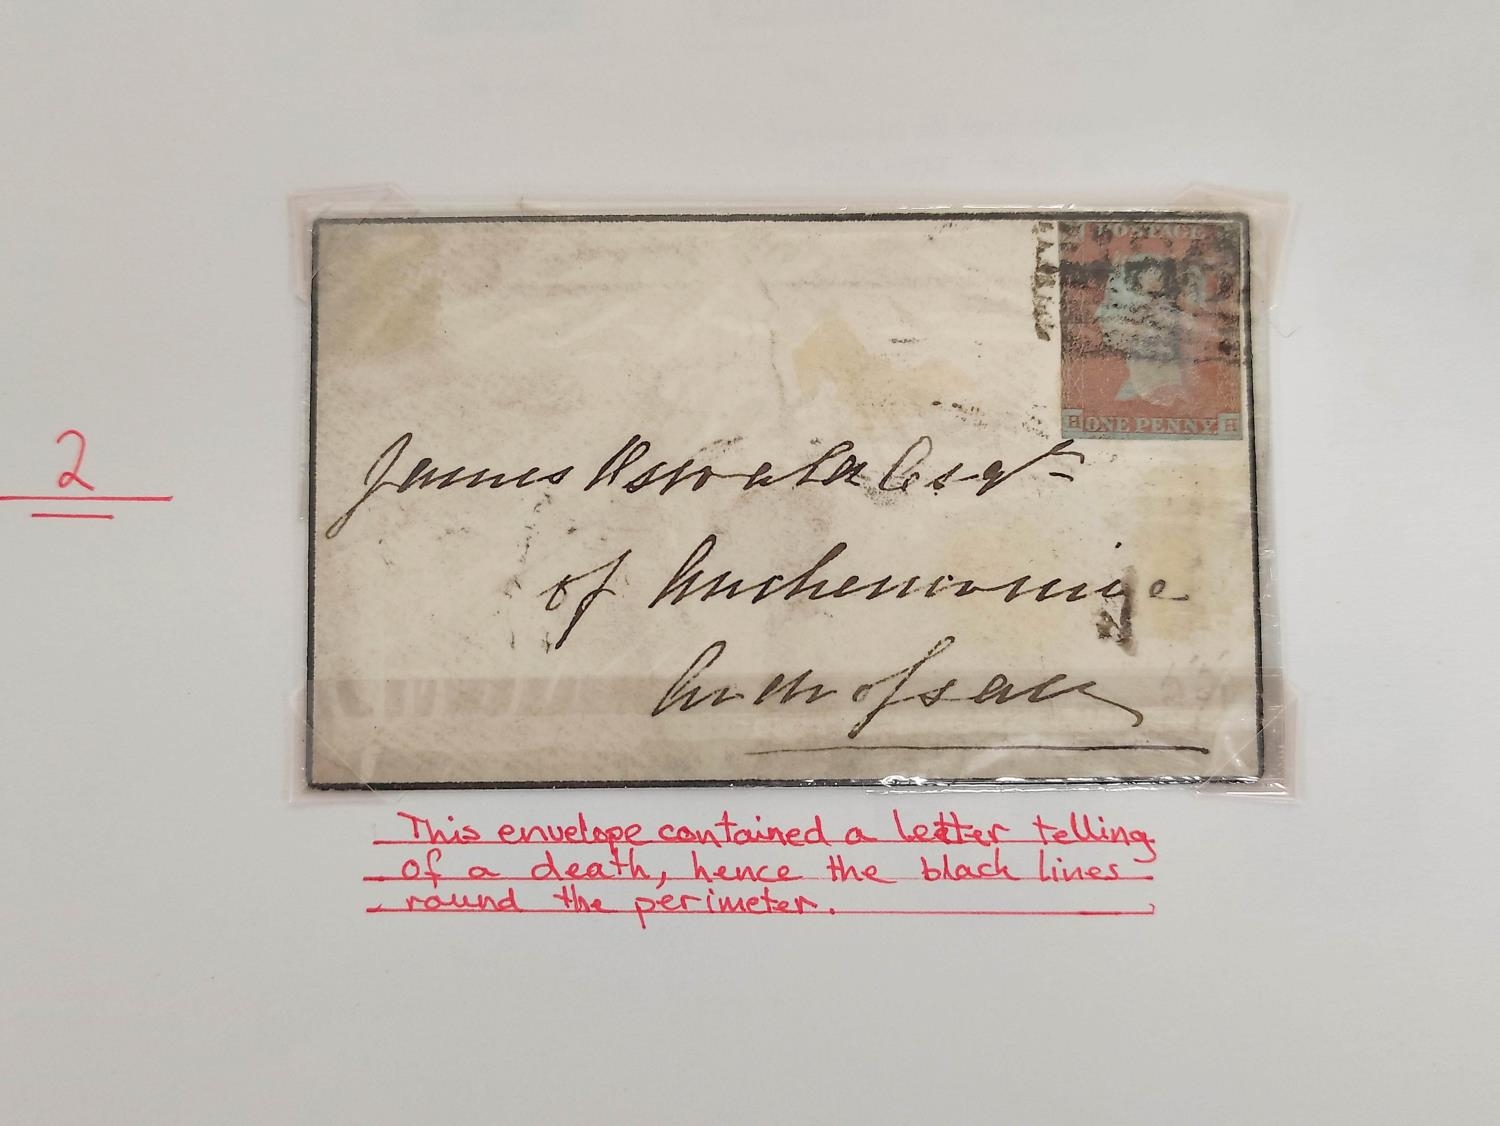 POSTAGE
ONE PENNY
James Oswald Esqr
of Auchencruive
2
This envelope contained a letter telling
of a death, hence the black lines
round the perimeter.